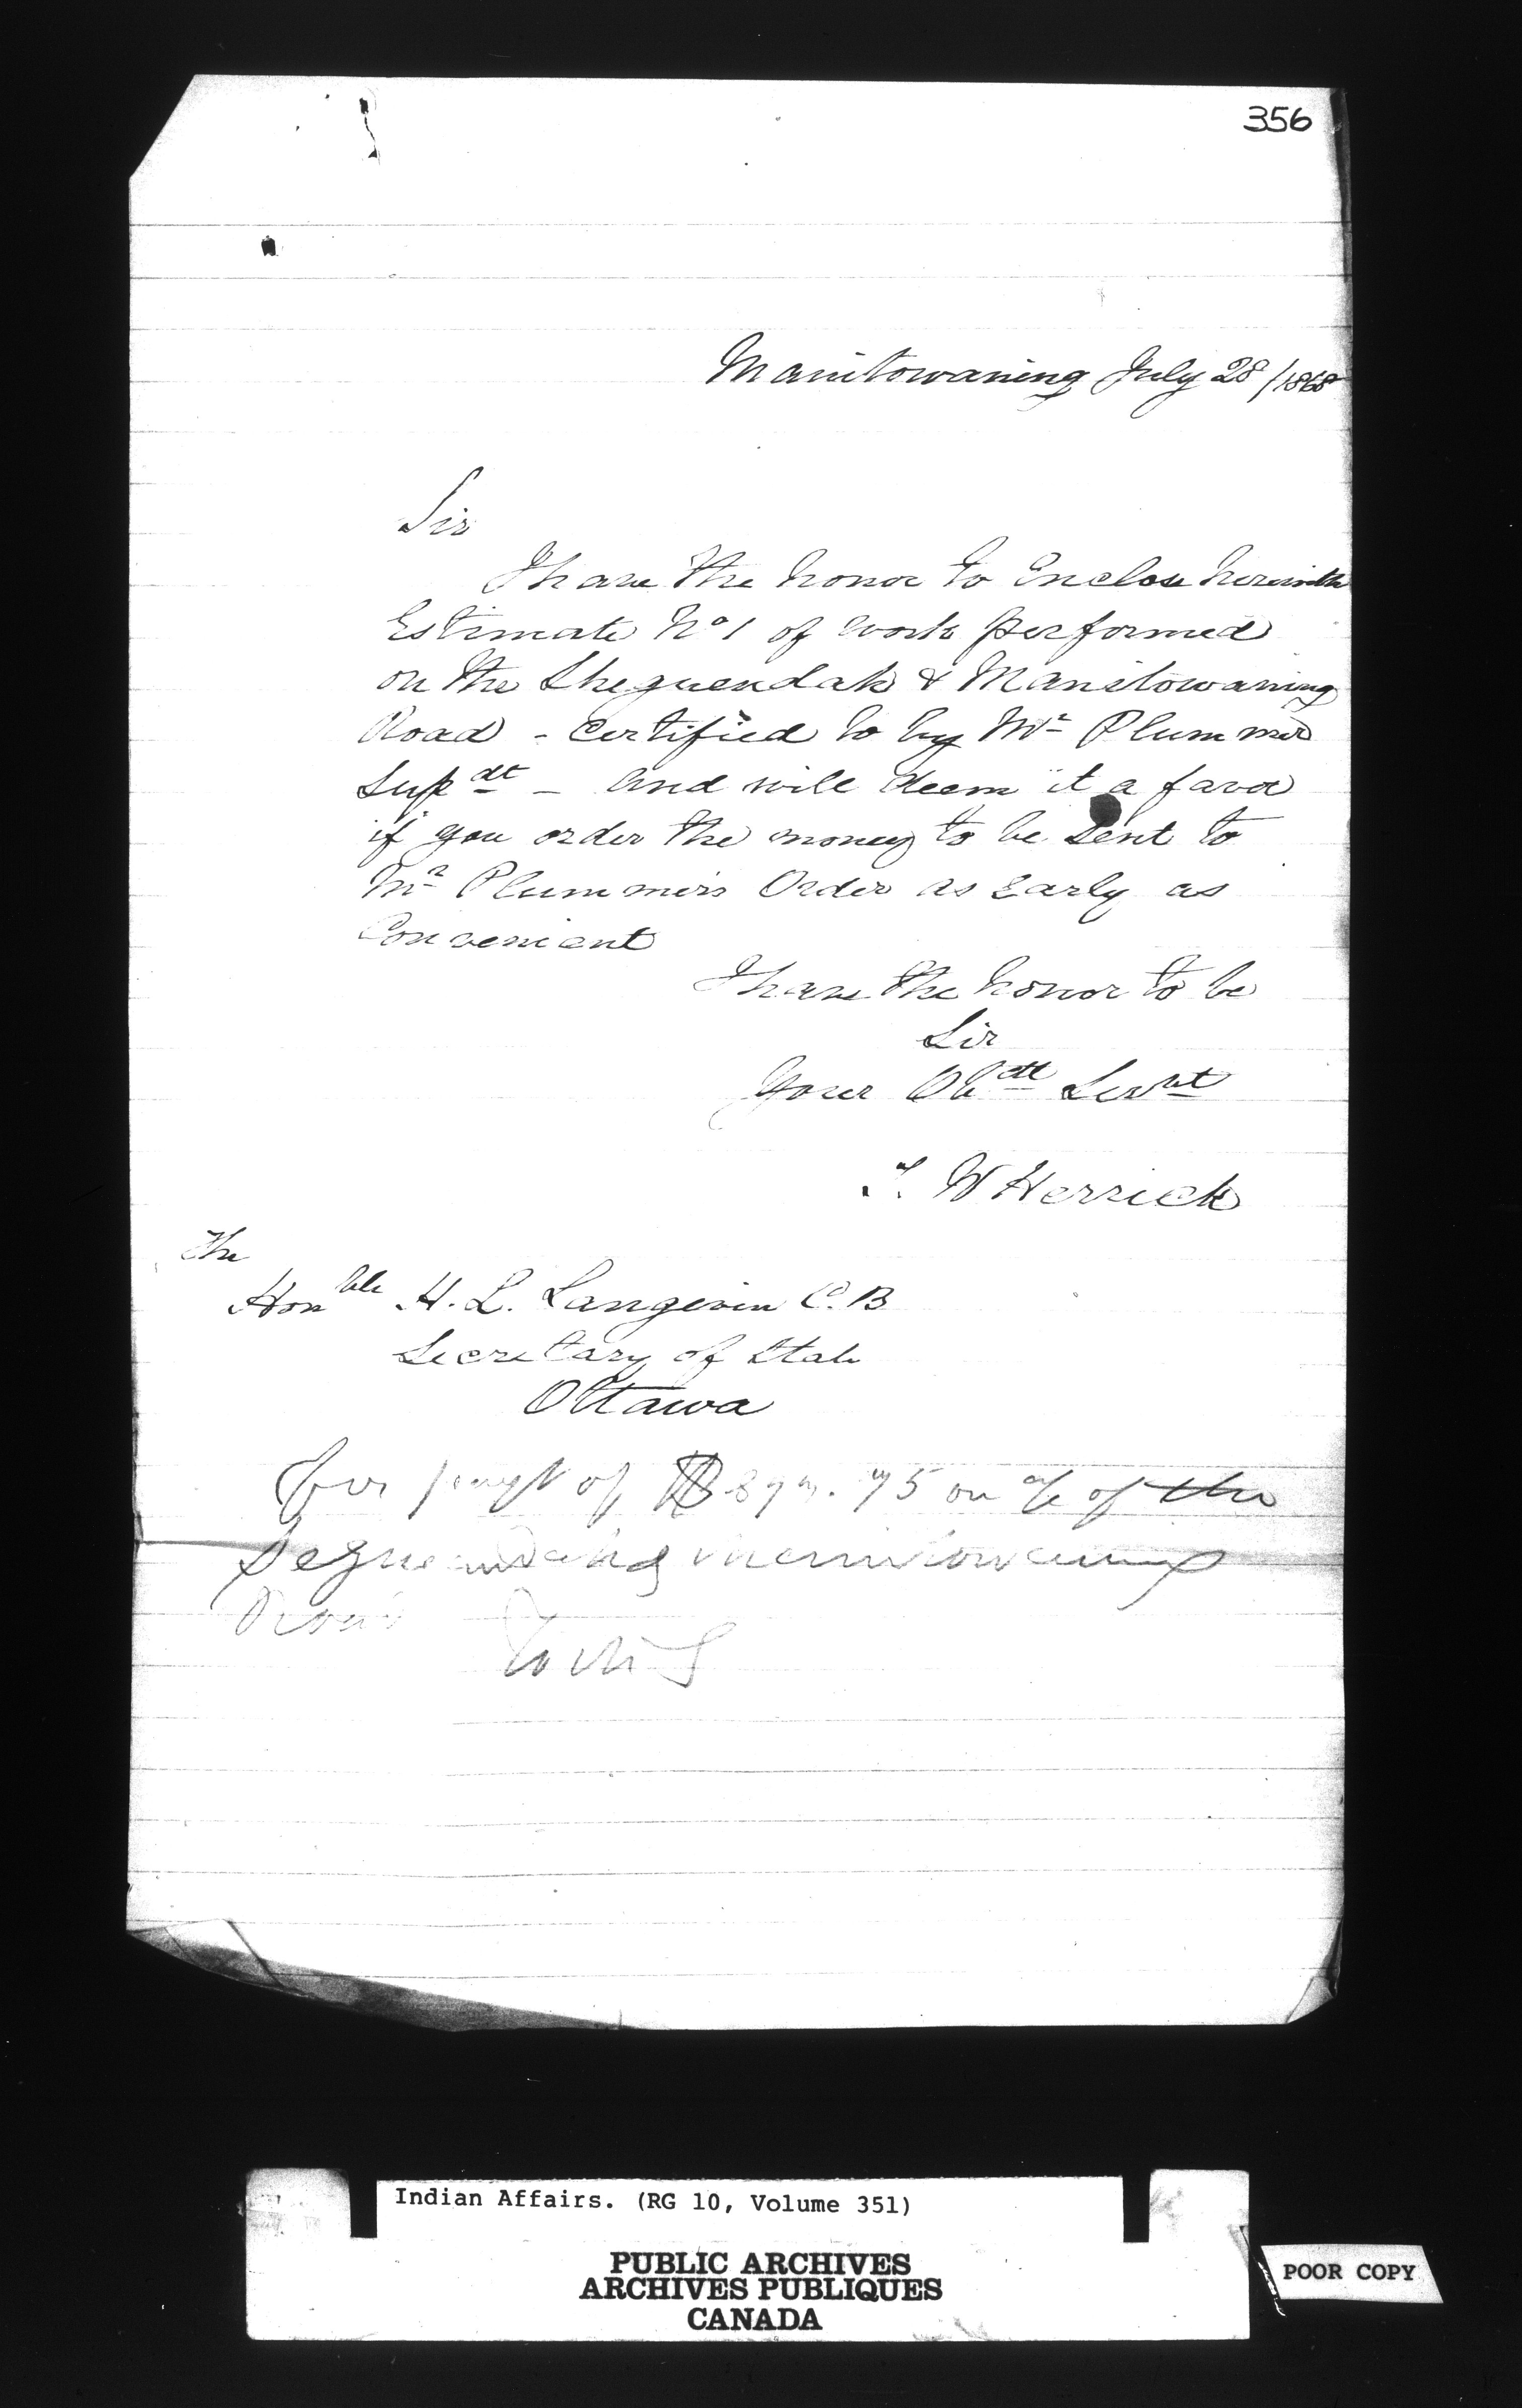 356
Manitowaning July 28/1868
Sir
I have the honor to Enclose herewith
Estimate No 1 of work performed
on the Sheguendah & Manitowaning
Road - Certified to by Mr Plummer
Supdt - and will deem it a favor
if you order the money to be Sent to
Mr Plummers Order as Early as
Convenient
I have the honor to be
Sir
Your Obdt Servt
T. W Herrick
The
Honble H. L. Langevin C. B
Secretary of State
Ottawa
For paymt of 75 on a/c of the
Manitowaning
Road
Indian Affairs. (RG 10, Volume 351)
PUBLIC ARCHIVES
ARCHIVES PUBLIQUES
CANADA
POOR COPY